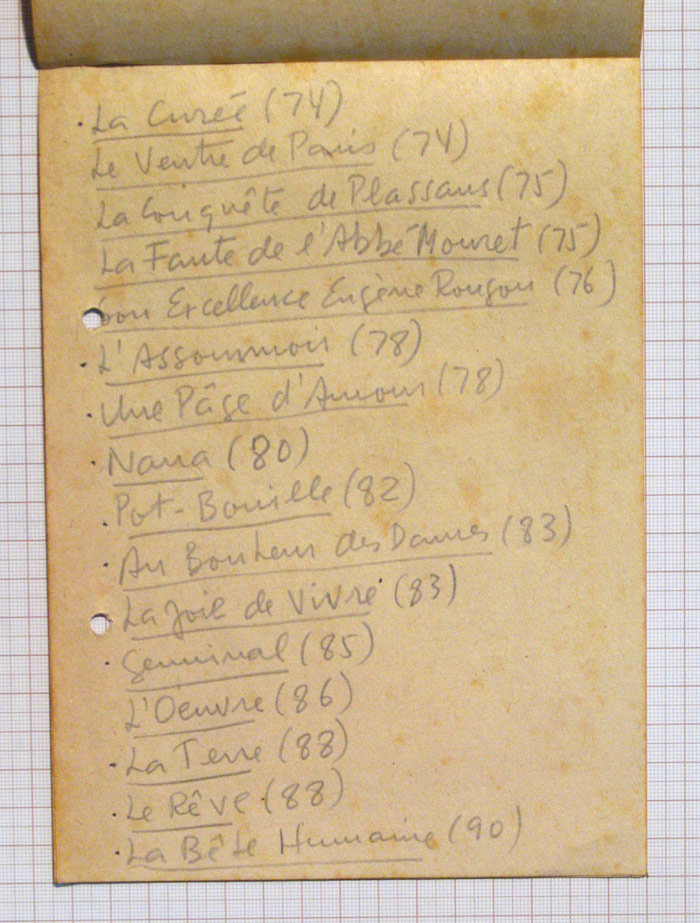 · La Curée (74)
Le Ventre de Paris (74)
La Conquête de Plassans (75)
La Faute de l'Abbé Mouret (75)
Son Excellence Eugène Rougon (76)
· L'Assommoir (78)
· Une Page d'Amour (78)
· Nana (80)
· Pot-Bouille (82)
· Au Bonheur des Dames (83)
· La Joie de Vivre (83)
· Germinal (85)
L'Oeuvre (86)
· La Terre (88)
· Le Rêve (88)
· La Bête Humaine (90)